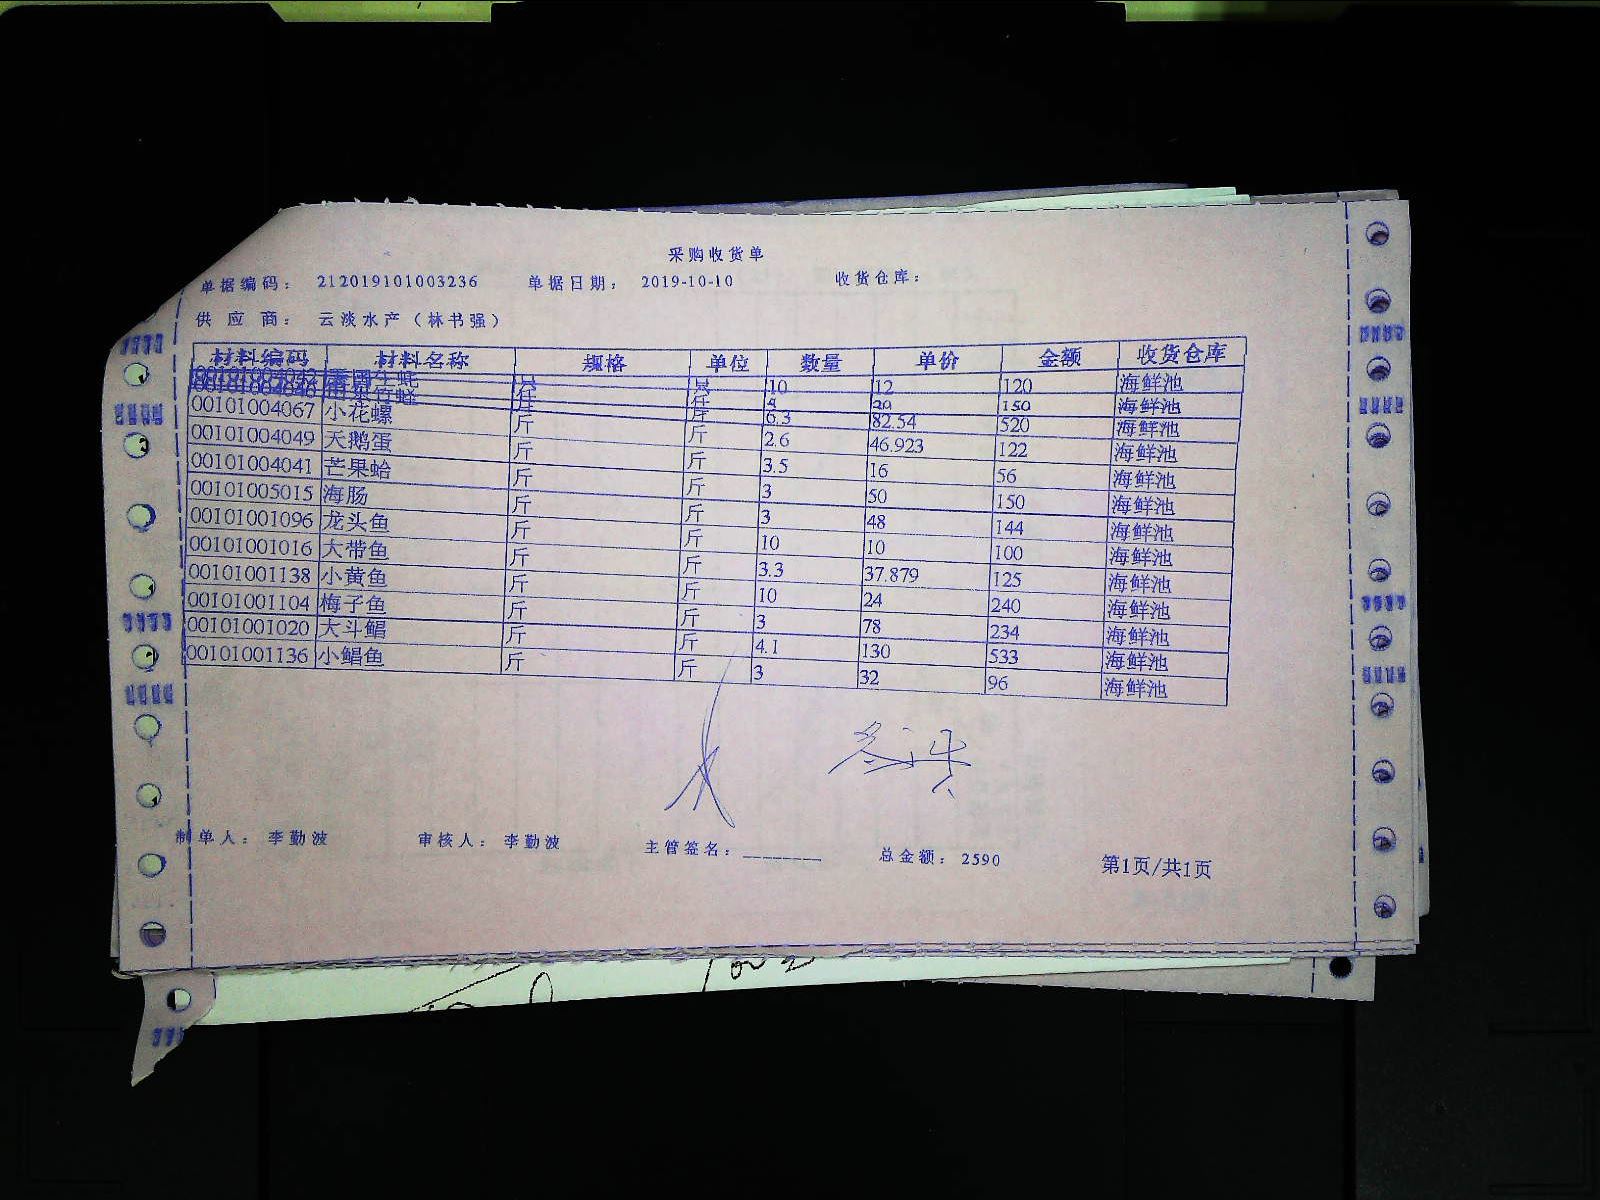 采购收货单
单据编码： 212019101003236 单据日期： 2019-10-10 收货仓库：
供 应 商： 云淡水产（林书强）
材料编码 材料名称 规格 单位 数量 单价 金额 收货仓库
只 只 10 12 120 海鲜池
斤 斤 150 海鲜池
00101004067 小花螺 斤 斤 6.3 82.54 520 海鲜池
00101004049 天鹅蛋 斤 斤 2.6 46.923 122 海鲜池
00101004041 芒果蛤 斤 斤 3.5 16 56 海鲜池
00101005015 海肠 斤 斤 3 50 150 海鲜池
00101001096 龙头鱼 斤 斤 3 48 144 海鲜池
00101001016 大带鱼 斤 斤 10 10 100 海鲜池
00101001138 小黄鱼 斤 斤 3.3 37.879 125 海鲜池
00101001104 梅子鱼 斤 斤 10 24 240 海鲜池
00101001020 大斗鲳 斤 斤 3 78 234 海鲜池
00101001136 小鲳鱼 斤 斤 4.1 130 533 海鲜池
3 32 96 海鲜池
制单人： 李勤波 审核人： 李勤波 主管签名：________ 总金额：2590 第1页/共1页